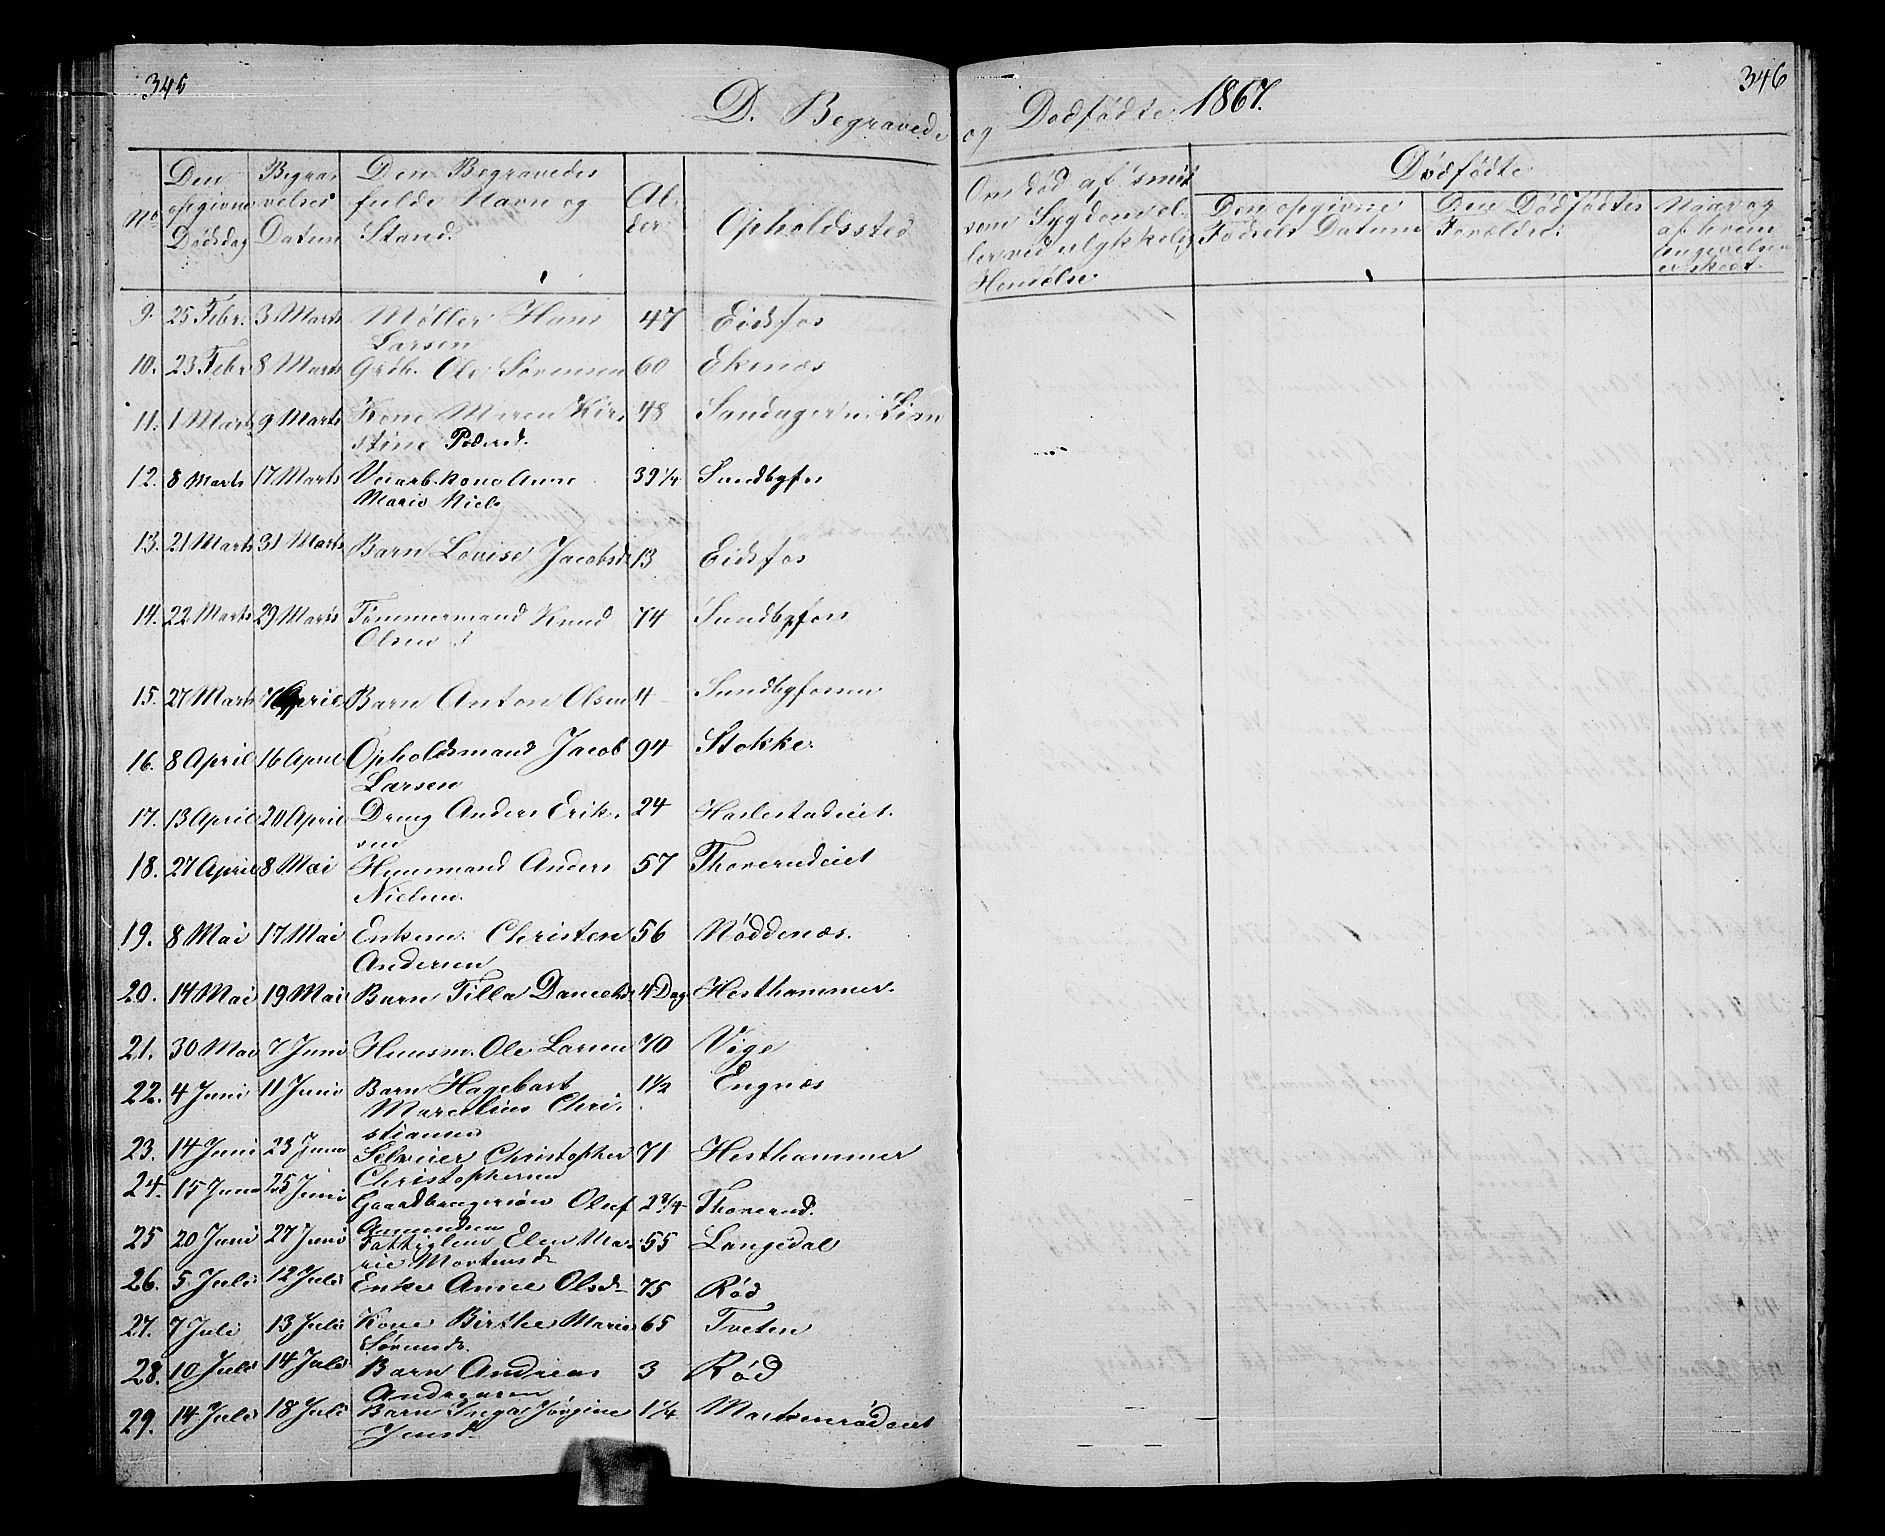 345
346
D. Begravede og Dødfødte 1867.
No.
Den opgivne Dødsdag
Begravelses Datum
Den Begravedes fulde Navn og Stand.
Alder
Opholdssted
Om død af smitsom Sygdom eller ved ulykkelig Hendelse
Dødfødte
Den opgivne Fødsels Datum
Den Dødfødtes Forældre.
Naar og af hvem Angivelsen er skeet.
9. 25 Febr. 3 Marts Møller Hans 47 Eidsfos
Larsen
10. 23 Febr 8 Marts Grbr. Ole Sørensen 60 Ekenæs
11. 1 Marts 9 Marts Kone Maren Kir- 48 Sandager i
stine Pedersd.
12. 8 Marts 17 Marts Veiarb. kone Anne 39 1/4 Sundbyfos
Marie Niels
13. 21 Marts 31 Marts Barn Lovise Jacobsd 13 Eidsfos
14. 22 Marts 29 Marts Tømmermand Knud 74 Sundbyfos
Olsen
15. 27 Marts 7 April Barn Anton Olsen 4 Sundbyfossen
16. 8 April 16 April Opholdsmand Jacob 94 Stokke.
Larsen
17. 13 April 20 April Dreng Anders Erik- 24 Haslestadeiet.
sen
18. 27 April 8 Mai Huusmand Anders 57 Thoverudeiet
Nielsen.
19. 8 Mai 17 Mai Enkem. Christen 56 Nøddenæs.
Andersen
20. 14 Mai 19 Mai Barn Tilla Danielsd 4 Dag. Hesthammer.
21. 30 Mai 7 Juni Huusm. Ole Larsen 70 Vige
22. 4 Juni 11 Juni Barn Hagebart 1 1/2 Engnæs
Marelius Chri-
stiansen
23. 14 Juni 23 Juni Selveier Christopher 71 Hesthammer
Christophersen
24. 15 Juni 25 Juni Gaardbrugersøn Oluf 2 3/4 Thoverud.
Amundsen
25 20 Juni 27 Juni Fattiglem Elen Ma- 55 Langedal
rie Mortensd
26. 5 Juli 12 Juli Enke Anne Olsd 75 Rød
27. 7 Juli 13 Juli Kone Birthe Marie 65 Tveten
Sørensdr.
28. 10 Juli 14 Juli Barn Andreas 3 Rød
Andreasen
29. 14 Juli 18 Juli Barn Inga Jørgine 1 1/4
Jensd.